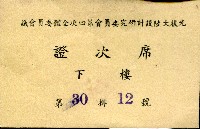 光復大陸設計研究委員會第四次全體委員會議
席次證
樓下
第 30 排 12 號